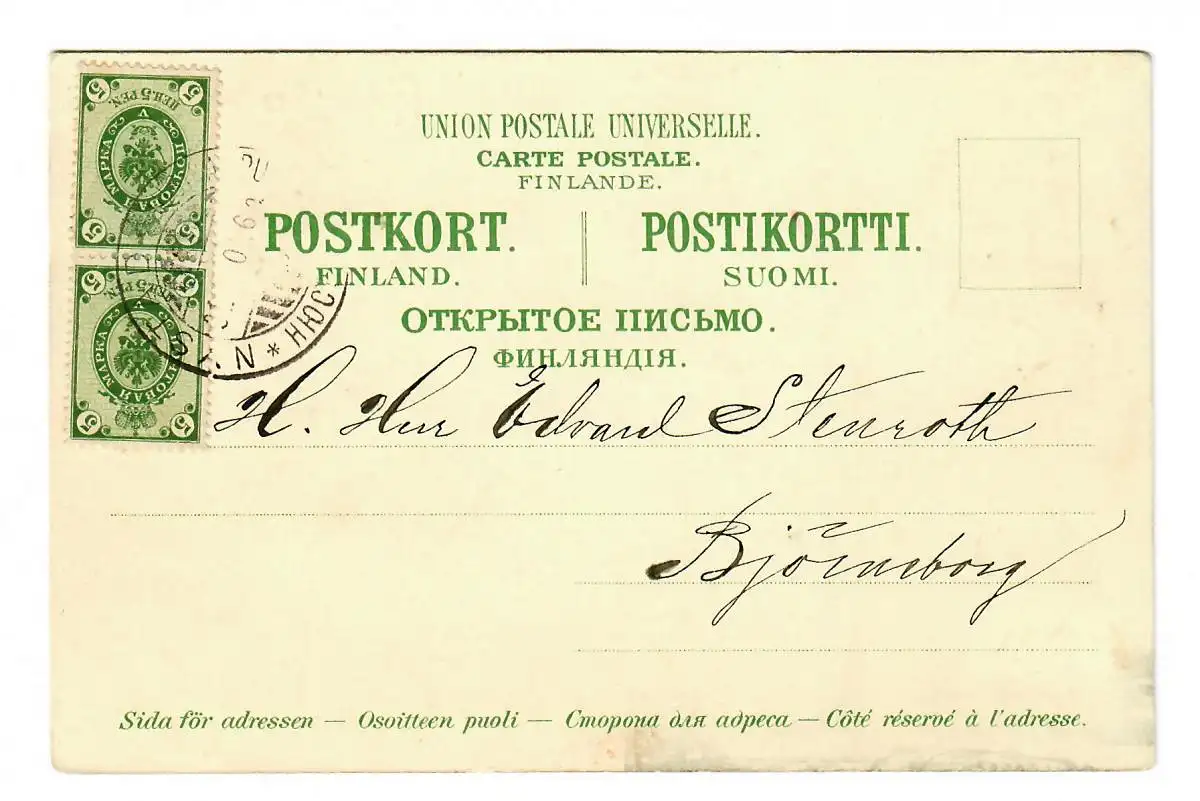 UNION POSTALE UNIVERSELLE.
CARTE POSTALE.
FINLANDE.
POSTKORT. POSTIKORTTI.
FINLAND. SUOMI.
ОТКРЫТОЕ ПИСЬМО.
ФИНЛЯНДІЯ.
5 5
ПЕН. 5 PEN.
МАРКА V
5 5
5 5
ПЕН. 5 PEN.
МАРКА V
5 5
NYST
НЮС
H. Herr Edvard Stenroth
Björneborg
Sida för adressen — Osoitteen puoli — Сторона для адреса — Côté réservé à l'adresse.